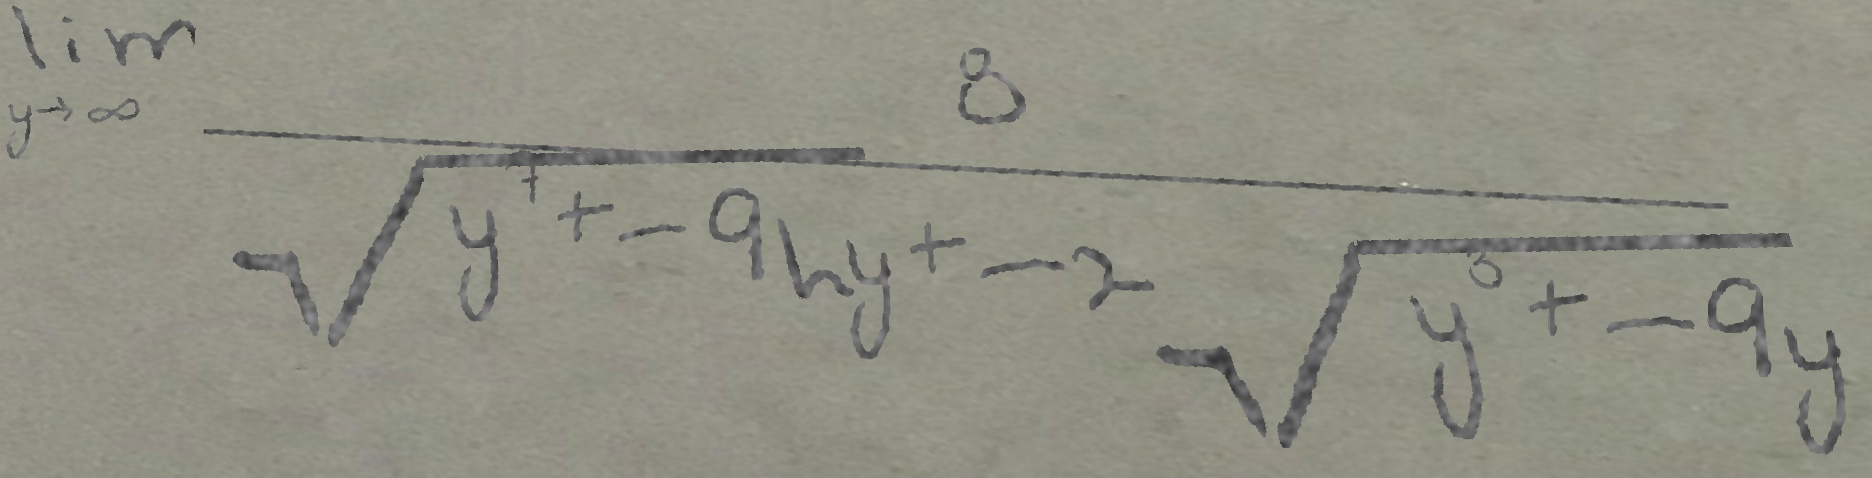 \lim_{y \to \infty} \frac{8}{\sqrt{y^7 + -9} hy + -2 \sqrt{y^3 + -9y}}